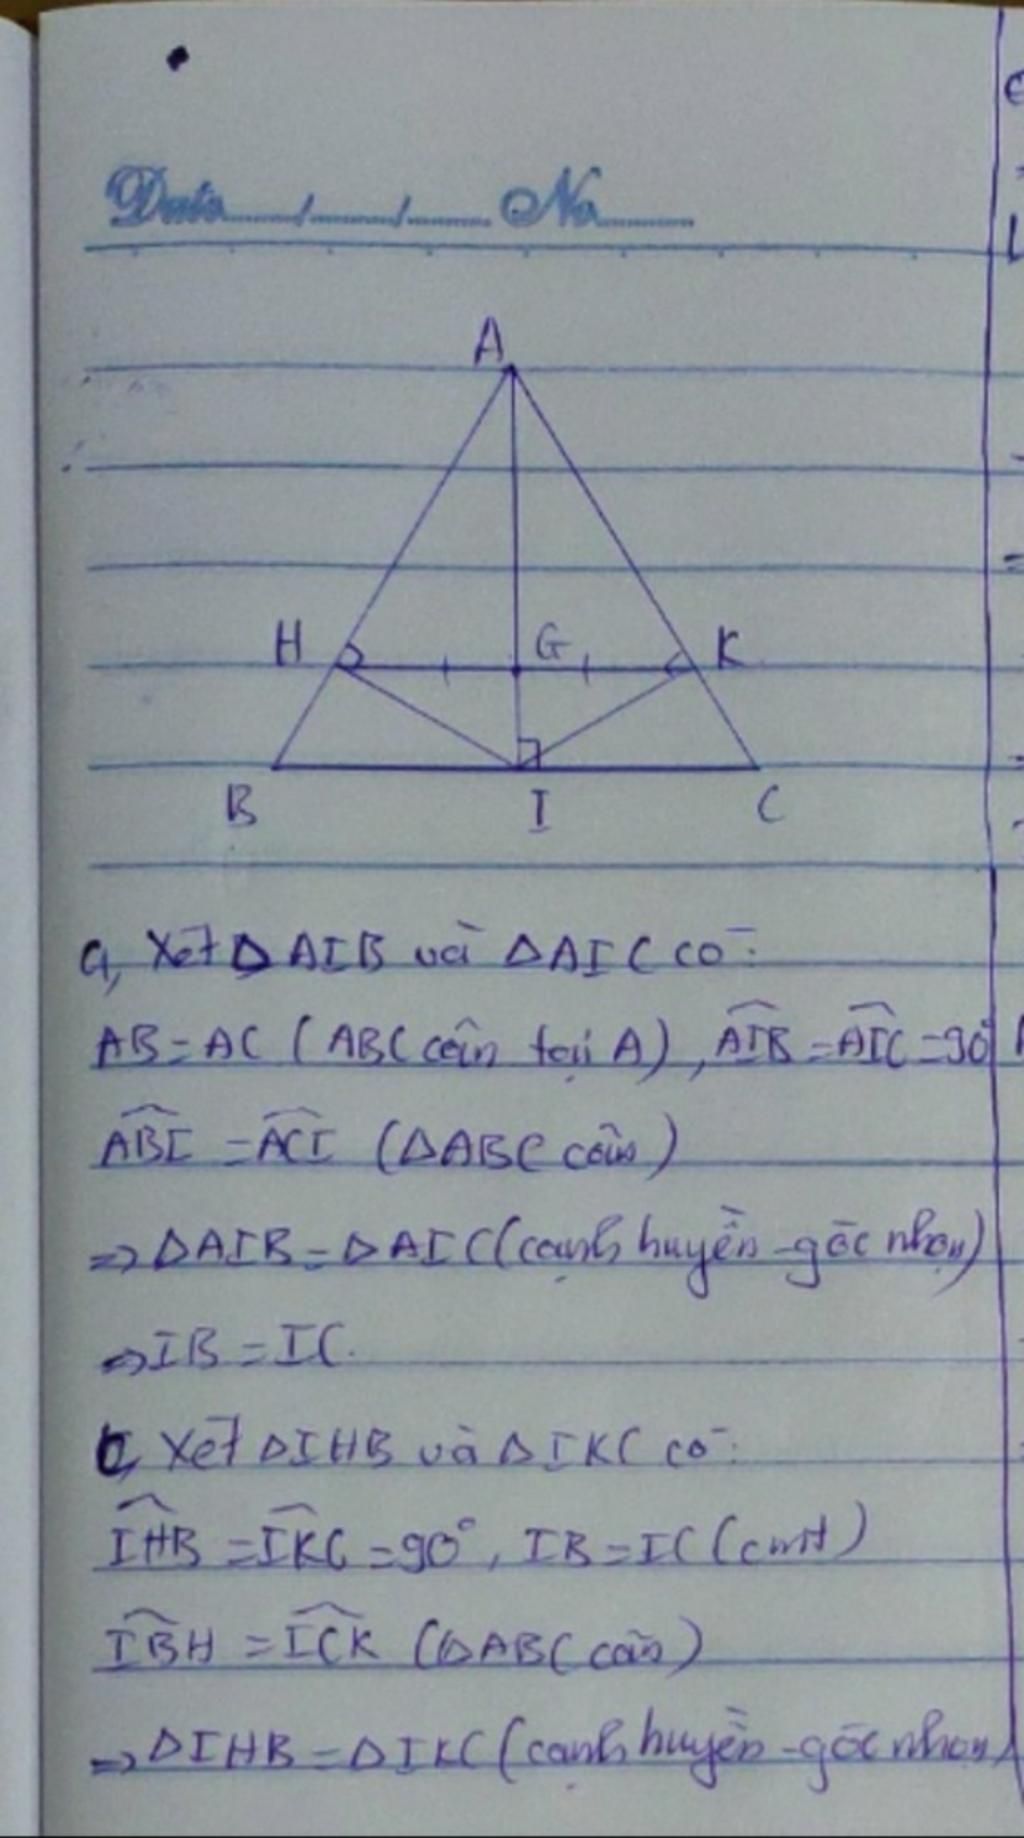 Date / / No
A
H G K
B I C
a, Xét ΔAIB và ΔAIC có:
AB = AC (ABC cân tại A), \widehat{AIB} = \widehat{AIC} = 90°
\widehat{ABI} = \widehat{ACI} (ΔABC cân)
=> ΔAIB = ΔAIC (cạnh huyền - góc nhọn)
=> IB = IC.
b, Xét ΔIHB và ΔIKC có:
\widehat{IHB} = \widehat{IKC} = 90°, IB = IC (cmt)
\widehat{IBH} = \widehat{ICK} (ΔABC cân)
=> ΔIHB = ΔIKC (cạnh huyền - góc nhọn)